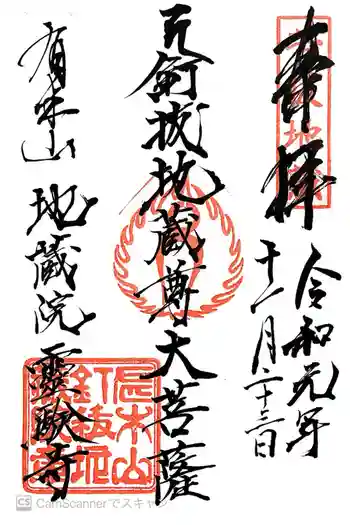 奉拝
令和元年
十一月二十三日
釘抜地蔵尊大菩薩
木山
地蔵院
靈験寺
木山
釘抜地
CS CamScannerでスキャン